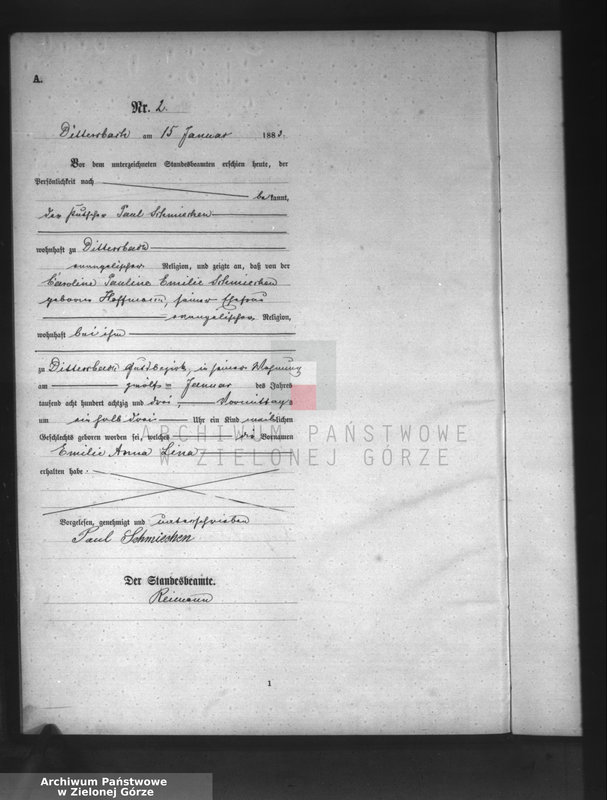 A.
Nr. 2.
Dittersbach am 15 Januar 1883.
Vor dem unterzeichneten Standesbeamten erschien heute, der
Persönlichkeit nach
bekannt,
der Kutscher Paul Schmiechen
wohnhaft zu Dittersbach
evangelischer Religion, und zeigte an, daß von der
Caroline Pauline Emilie Schmiechen
geboren Hoffmann, seiner Ehefrau
evangelischer Religion,
wohnhaft bei ihm
zu Dittersbach Gutsbezirk, in seiner Wohnung
am zwölf ten Januar des Jahres
tausend acht hundert achtzig und drei, Vormittags
um ein halb drei Uhr ein Kind weiblichen
Geschlechts geboren worden sei, welches die Vornamen
Emilie Anna Lina
erhalten habe
Vorgelesen, genehmigt und unterschrieben
Paul Schmiechen
Der Standesbeamte.
Reimann
1
ARCHIWUM PAŃSTWOWE
W ZIELONEJ GÓRZE
Archiwum Państwowe
w Zielonej Górze